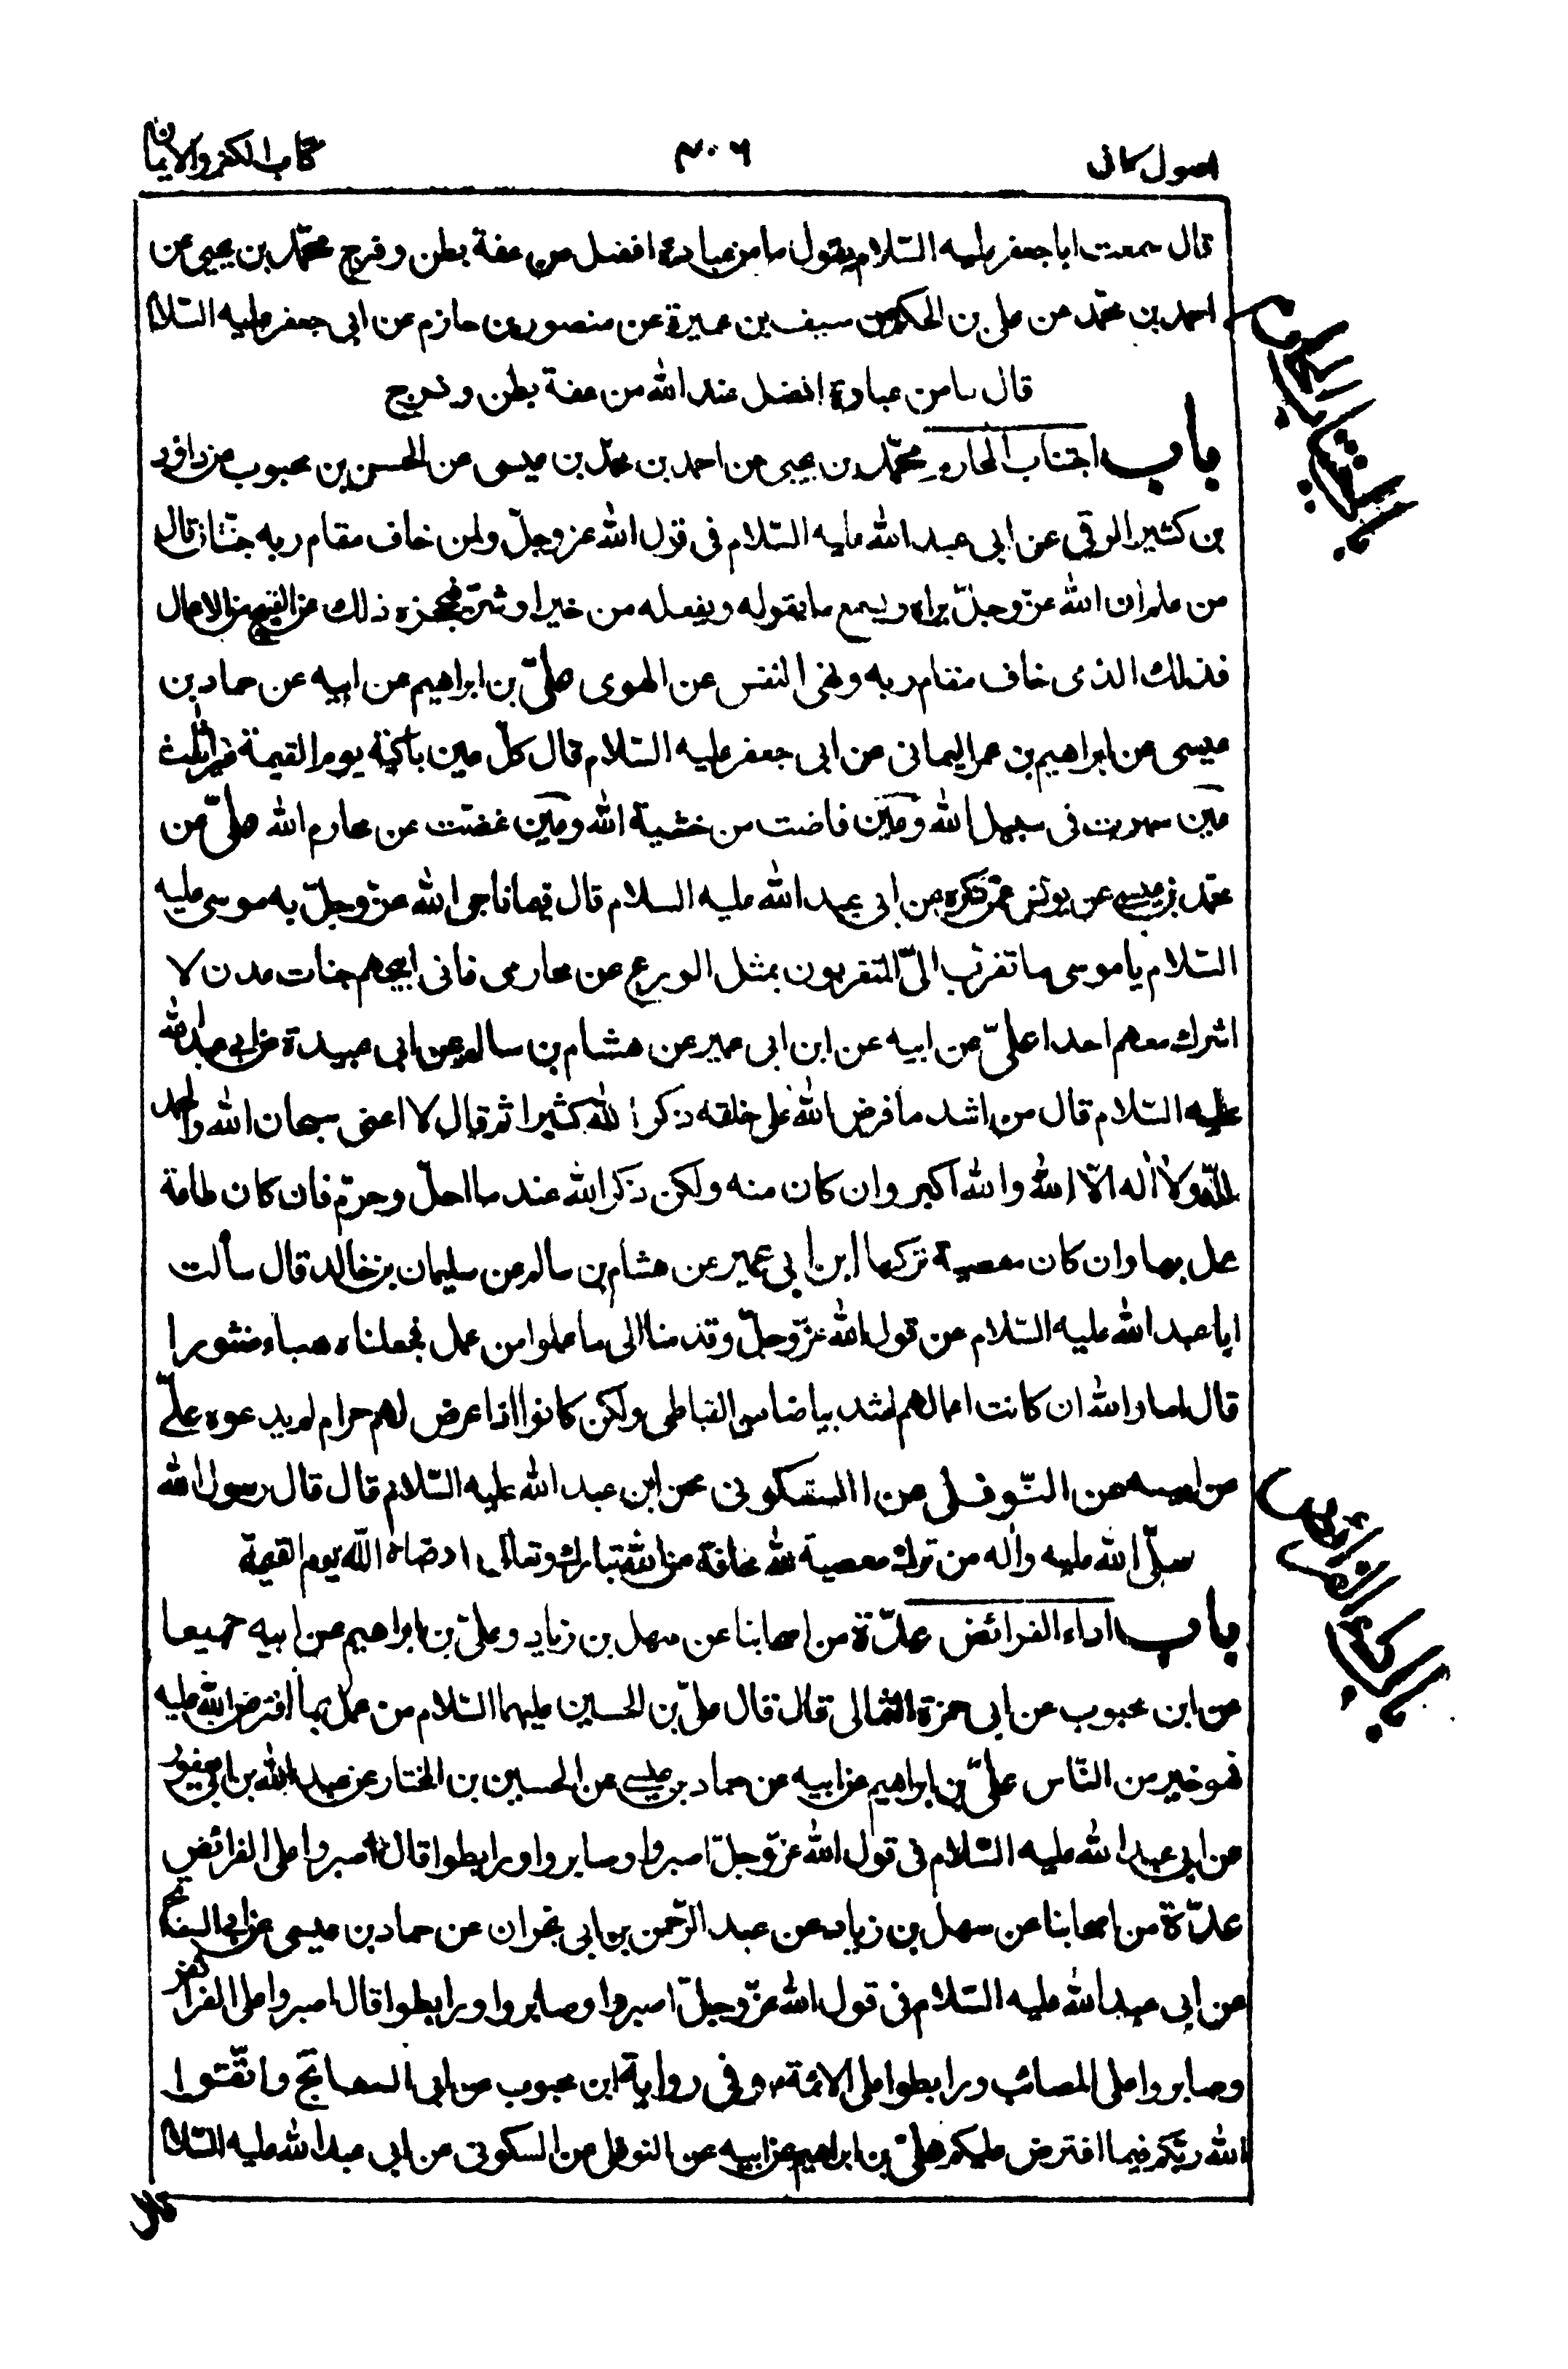 اصول كافى
٤٠٦
كتاب الكفر والايمان
قال سمعت ابا جعفر عليه السّلام يقول ما من عبادة افضل من عفة بطن وفرج محمّد بن يحيى عن
احمد بن محمّد عن على بن الحكم عن سيف بن عميرة عن منصور بن حازم عن ابى جعفر عليه السّلام
قال ما من عبادة افضل عند الله من عفة بطن وفرج
باب اجتناب المحارم محمّد بن يحيى عن احمد بن محمّد بن عيسى عن الحسن بن محبوب عن داود
بن كثير الرقى عن ابى عبد الله عليه السّلام فى قول الله عز وجلّ ولمن خاف مقام ربه جنّتان قال
من علم ان الله عزّ وجلّ يراه ويسمع ما يقوله ويفعله من خير او شرّ فيحجزه ذلك عن القبيح من الاعمال
فذلك الذى خاف مقام ربه ونهى النفس عن الهوى علىّ بن ابراهيم عن ابيه عن حماد بن
عيسى عن ابراهيم بن عمر اليمانى عن ابى جعفر عليه السّلام قال كلّ عين باكية يوم القيمة غير ثلث
عين سهرت فى سبيل الله وعين فاضت من خشية الله وعين غضّت عن محارم الله علىّ عن
محمّد بن عيسى عن يونس عمّن ذكره عن ابى عبد الله عليه السلام قال فيما ناجى الله عزّ وجلّ به موسى عليه
السّلام يا موسى ما تقرّب الىّ المتقربون بمثل الورع عن محارمى فانى ابيحهم جنات عدن لا
اشرك معهم احدا علىّ عن ابيه عن ابن ابى عمير عن هشام بن سالم عن ابى عبيدة عن ابى عبد الله
عليه السّلام قال من اشد ما فرض الله على خلقه ذكر الله كثيرا ثم قال لا اعنى سبحان الله والحمد
للّه ولا اله الاّ الله والله اكبر وان كان منه ولكن ذكر الله عند ما احلّ وحرّم فان كان طاعة
عمل بها وان كان معصية تركها ابن ابى عمير عن هشام بن سالم عن سليمان بن خالد قال سألت
ابا عبد الله عليه السّلام عن قول الله عزّ وجلّ وقدمنا الى ما عملوا من عمل فجعلناه هباء منثورا
قال اما والله ان كانت اعمالهم اشد بياضا من القباطى ولكن كانوا اذا عرض لهم حرام لم يدعوه علىّ
عن ابيه عن النّوفلى عن السكونى عن ابى عبد الله عليه السّلام قال قال رسول الله
صلّى الله عليه واله من ترك معصية لله مخافة من الله تبارك وتعالى ارضاه اللّه يوم القيمة
باب اداء الفرائض عدّة من اصحابنا عن سهل بن زياد وعلىّ بن ابراهيم عن ابيه جميعا
عن ابن محبوب عن ابى حمزة الثمالى قال قال علىّ بن الحسين عليهما السّلام من عمل بما افترض الله عليه
فهو خير من النّاس علىّ بن ابراهيم عن ابيه عن حماد بن عيسى عن الحسين بن المختار عن عبد الله بن ابى يعفور
عن ابى عبد الله عليه السّلام فى قول الله عزّ وجلّ اصبروا وصابروا ورابطوا قال اصبروا على الفرائض
عدّة من اصحابنا عن سهل بن زياد عن عبد الرّحمن بن ابى نجران عن حماد بن عيسى عن ابى السفاتج
عن ابى عبد الله عليه السّلام فى قول الله عزّ وجلّ اصبروا وصابروا ورابطوا قال اصبروا على الفرائض
وصابروا على المصائب ورابطوا على الائمة وفى رواية ابن محبوب عن ابى السفاتج واتّقوا
الله ربّكم فيما افترض عليكم علىّ بن ابراهيم عن ابيه عن النوفلى عن السكونى عن ابى عبد الله عليه السّلام
قال